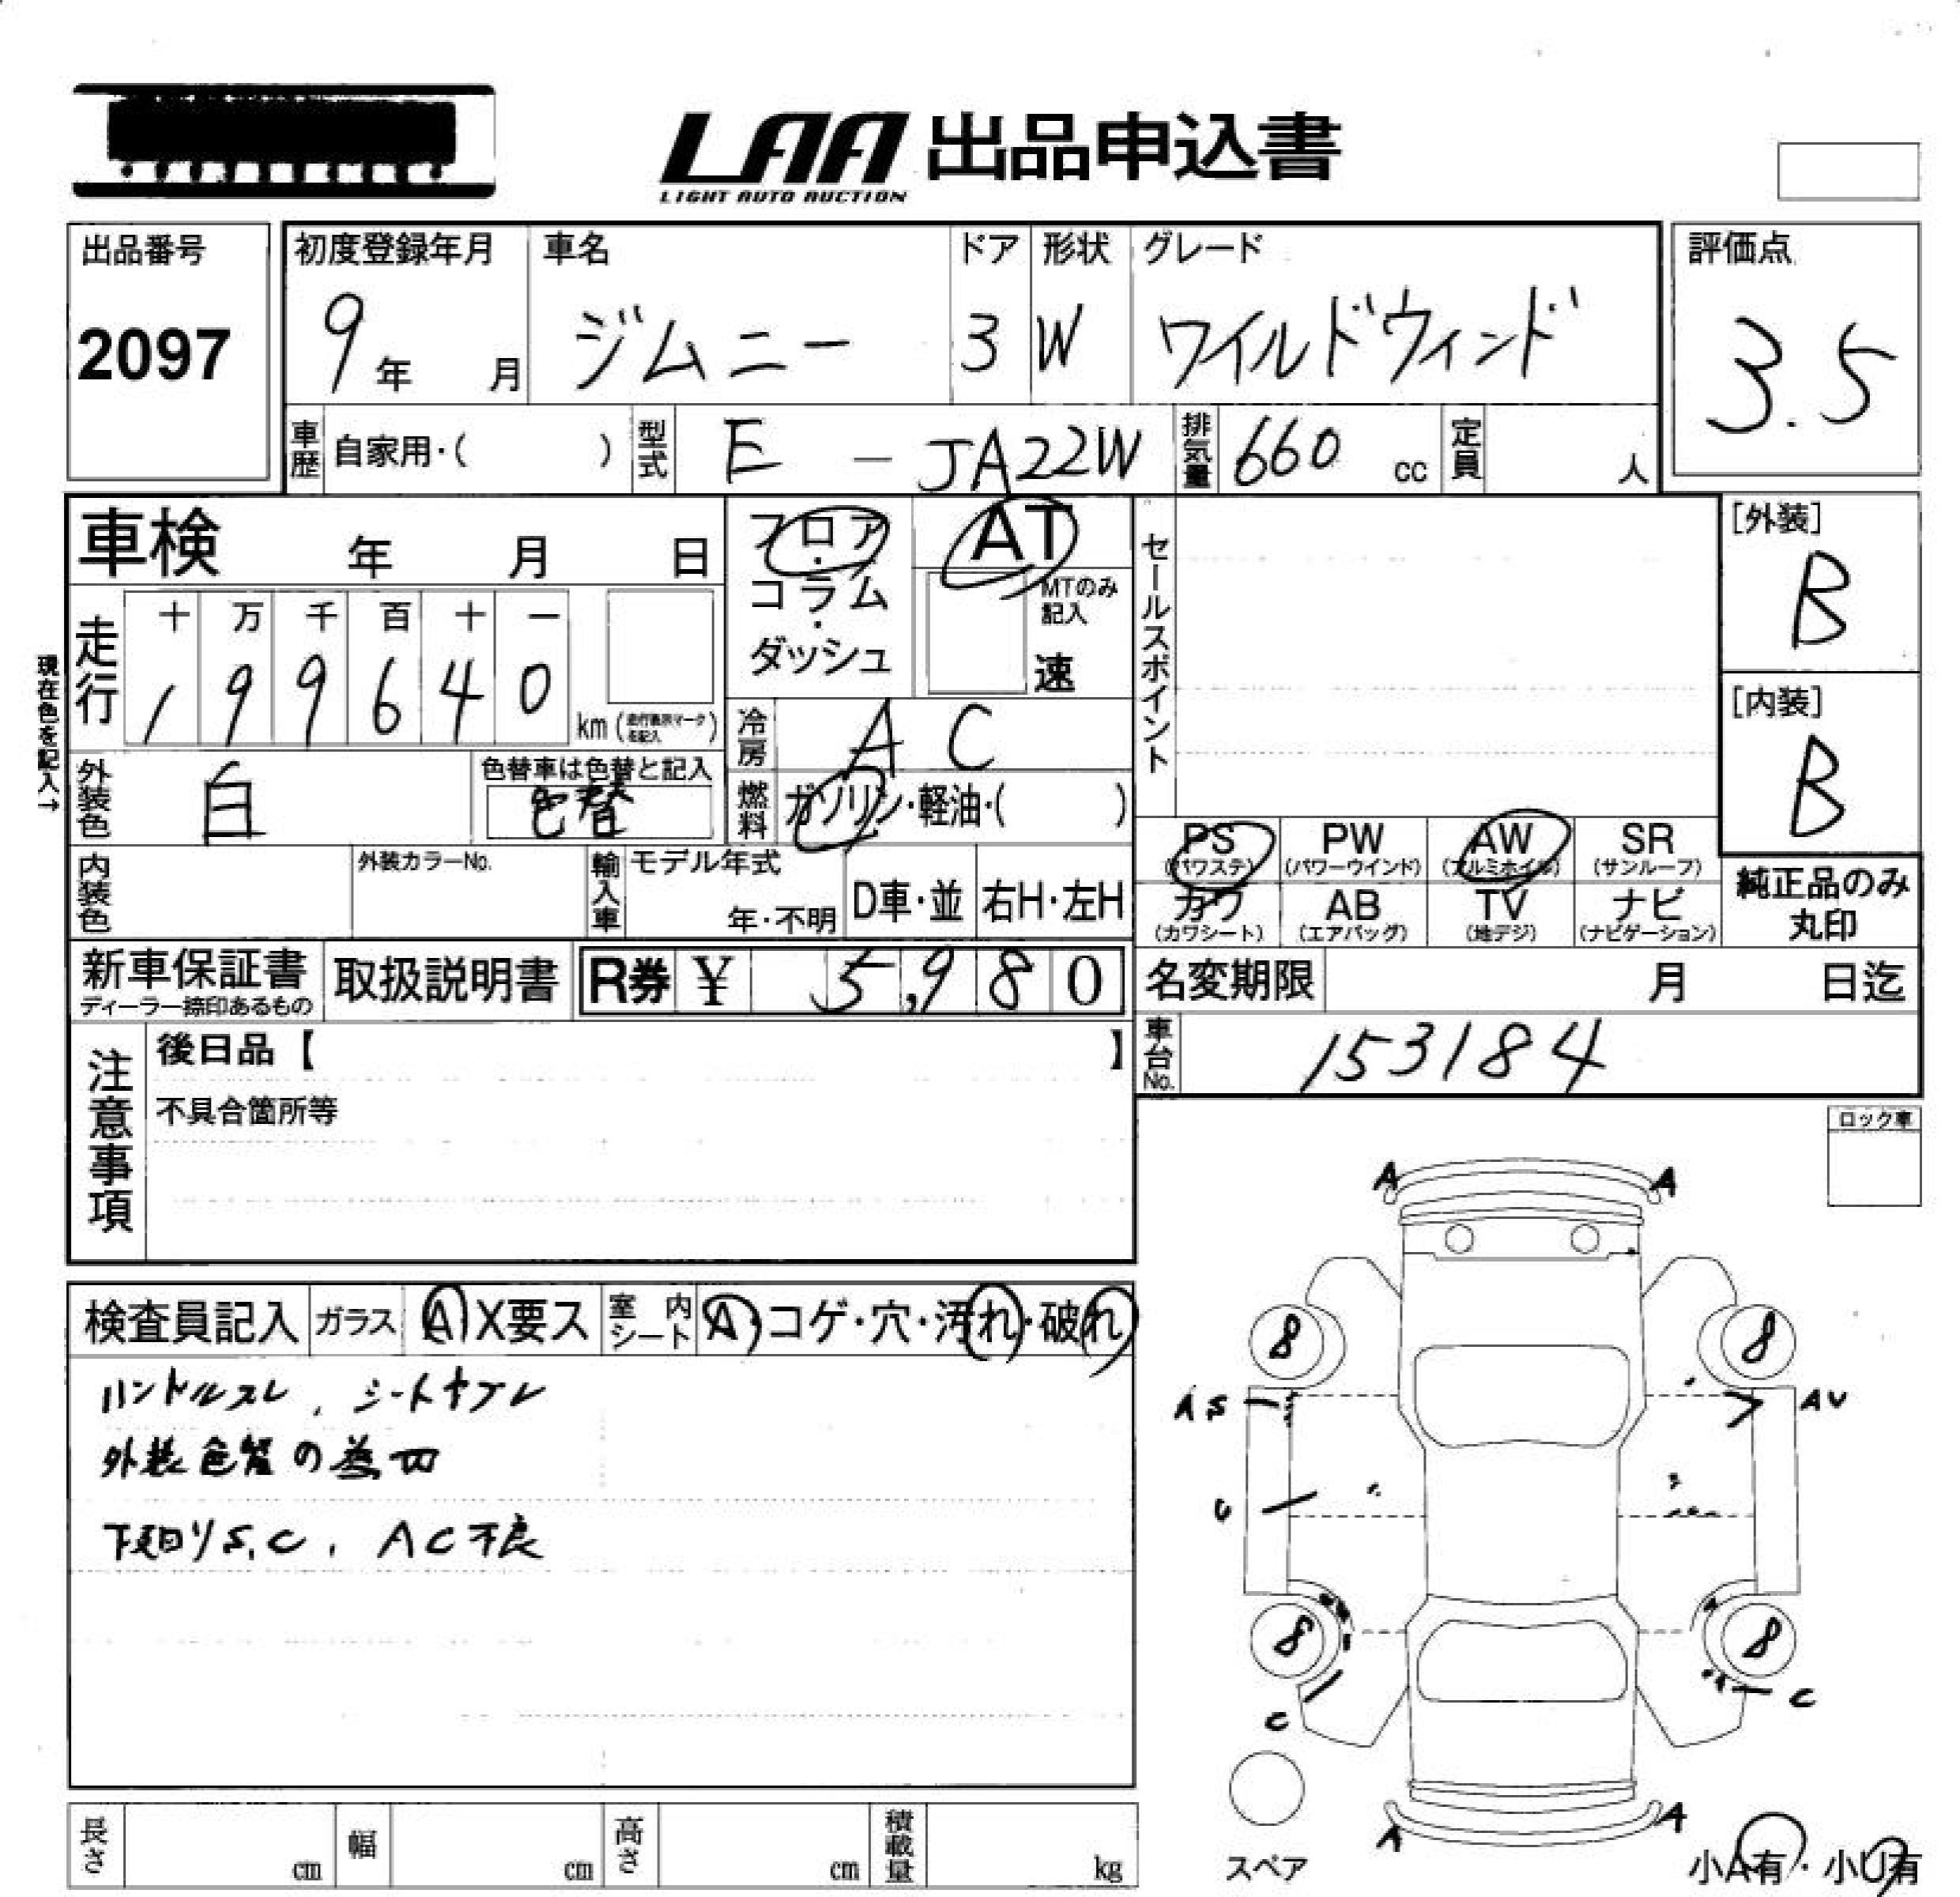 LAA 出品申込書
LIGHT AUTO AUCTION
出品番号
2097
初度登録年月
9年 月
車名
ジムニー
ドア
3
形状
W
グレード
ワイルドウィンド
評価点
3.5
車歴 自家用・( )
型式 E - JA22W
排気量 660 cc
定員 人
車検 年 月 日
フロア・コラム・ダッシュ
AT
MTのみ記入
速
セールスポイント
[外装]
B
[内装]
B
現在色を記入→
走行
十 万 千 百 十 一
1 9 9 6 4 0
km (走行表示マークを記入)
冷房 AC
外装色 白
色替車は色替と記入
色替
燃料 ガソリン・軽油・( )
PS (パワステ)
PW (パワーウインド)
AW (アルミホイル)
SR (サンルーフ)
カワ (カワシート)
AB (エアバッグ)
TV (地デジ)
ナビ (ナビゲーション)
純正品のみ丸印
内装色
外装カラーNo.
輸入車
モデル年式
年・不明
D車・並
右H・左H
新車保証書
ディーラー捺印あるもの
取扱説明書
R券 ¥ 5,980
名変期限 月 日迄
車台No. 153184
注意事項
後日品【 】
不具合箇所等
ロック車
検査員記入
ガラス A X要ス
室内シート A・コゲ・穴・汚れ・破れ
ハンドルスレ、シートヤブレ
外装色替の為
下廻りS,C、AC不良
A A
8 8
AS AU
U
8 8
C C
A A
スペア
小A有・小U有
長さ cm
幅 cm
高さ cm
積載量 kg